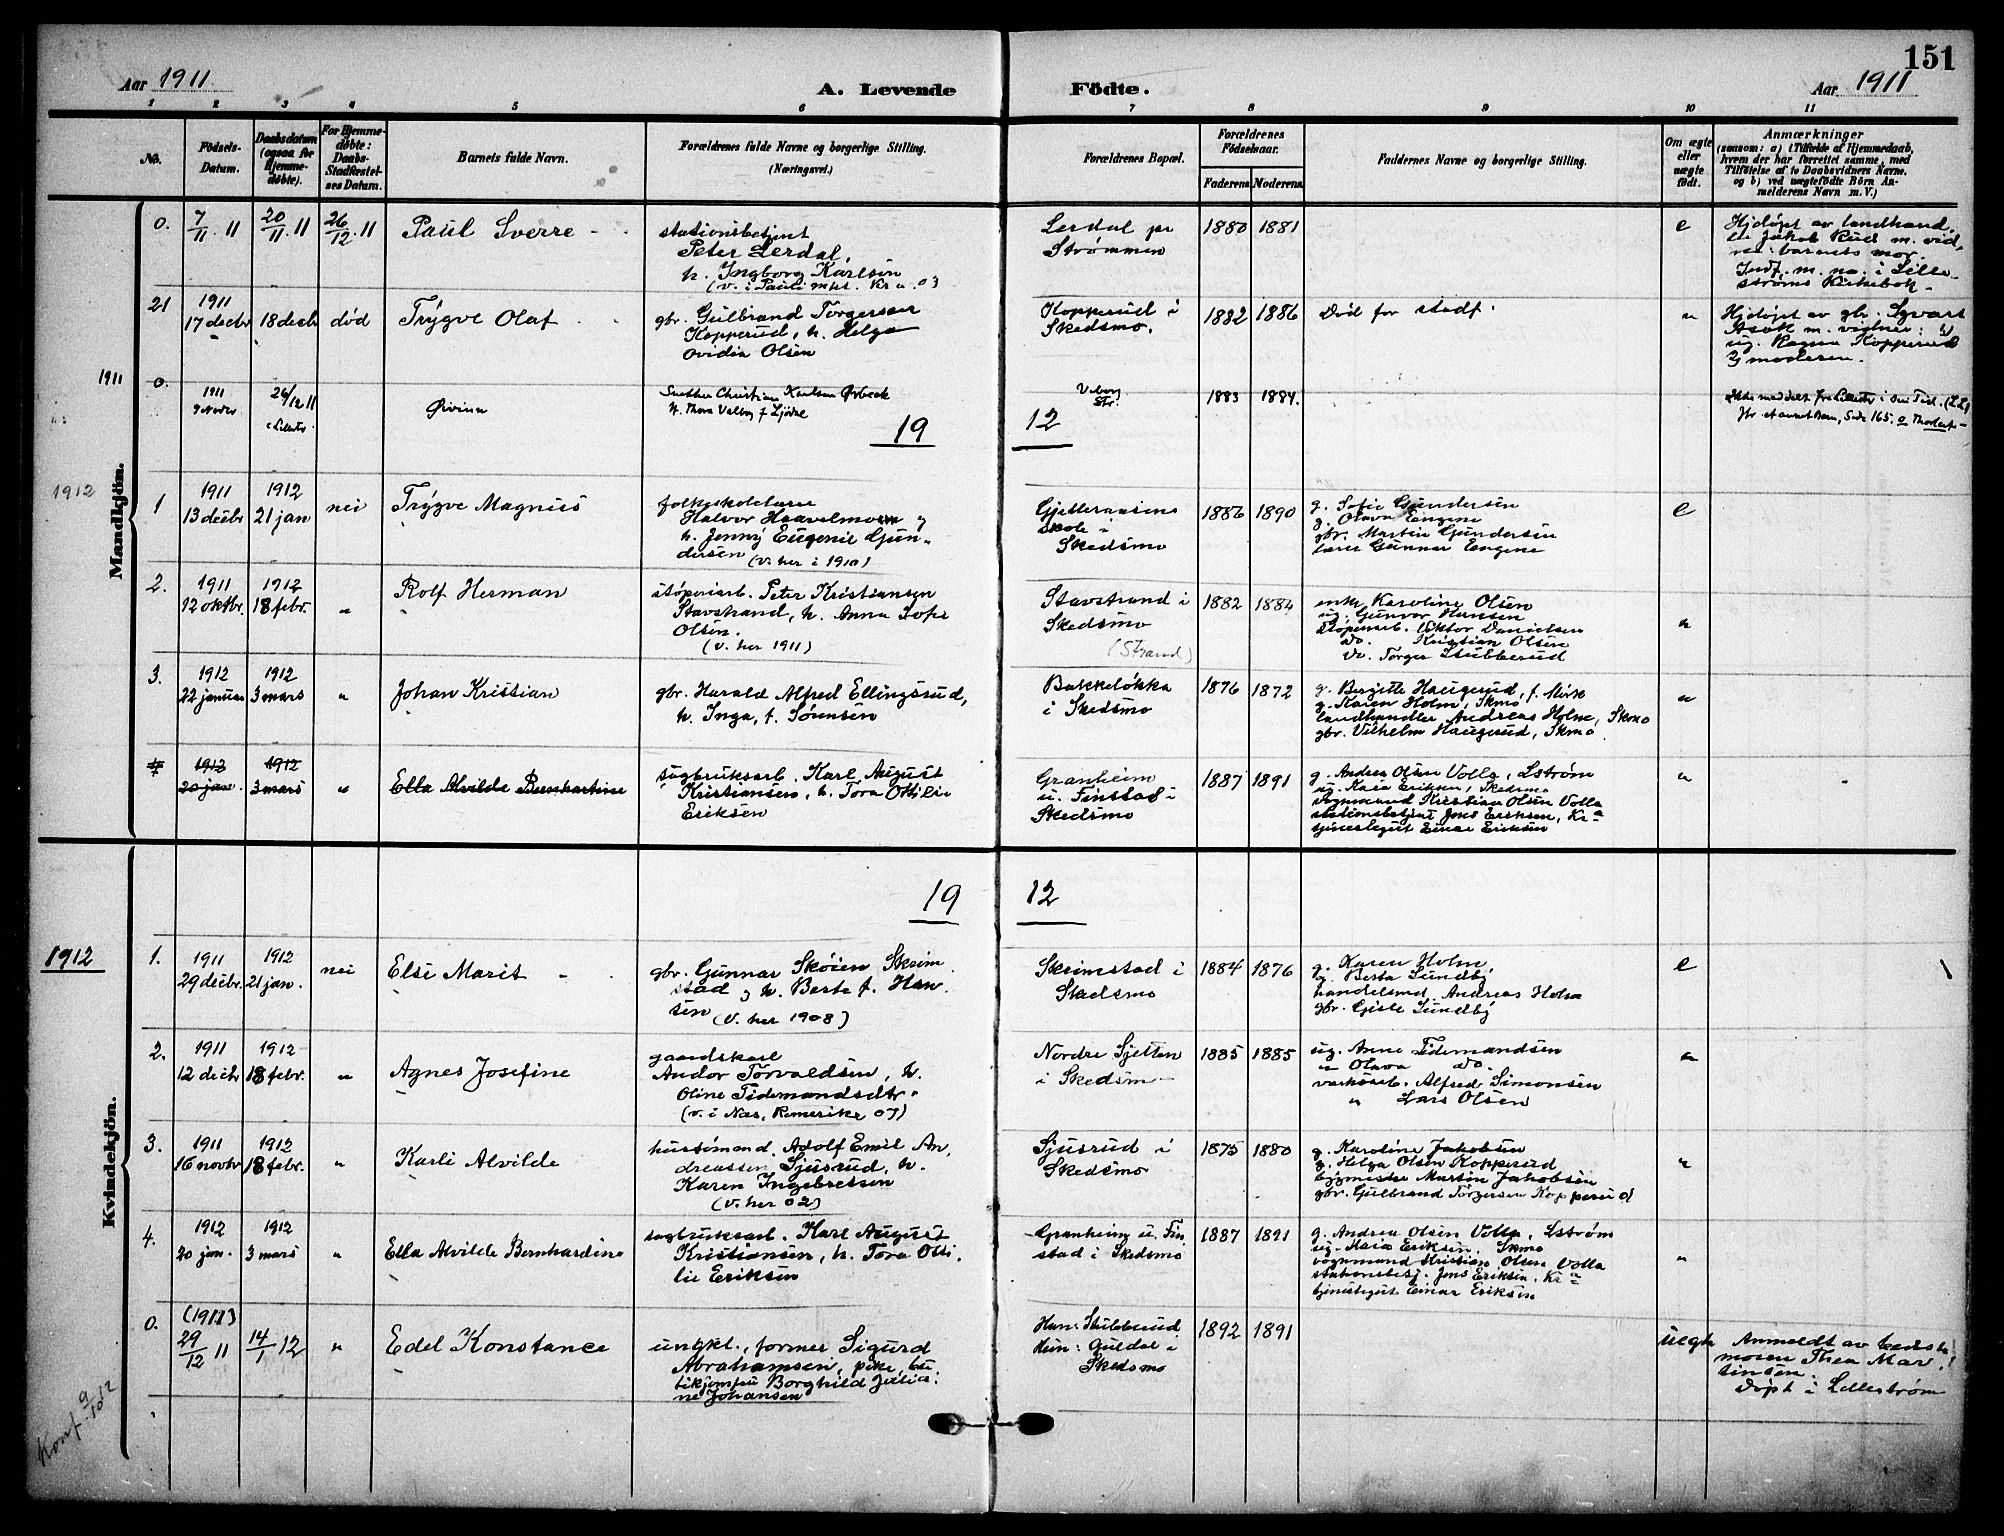 151
Aar 1911
A. Levende Födte.
Aar 1911
1 2 3 4 5 6 7 8 9 10 11
No.
Födsels-Datum.
Daabsdatum (ogsaa for Hjemme-döbte).
For Hjemme-döbte: Daabs-Stadfæstel-ses Datum.
Barnets fulde Navn.
Forældrenes fulde Navne og borgerlige Stilling.
(Næringsvei.)
Forældrenes Bopæl.
Forældrenes Födselsaar.
Faderens. Moderens.
Faddernes Navne og borgerlige Stilling.
Om ægte eller uægte födt.
Anmærkninger
(saasom: a) i Tilfælde af Hjemmedaab,
hvem der har forrettet samme, med
Tilföielse af to Daabsvidners Navne.
og b) ved uægtefödte Börn An-
melderens Navn m. V.)
Mandkjön.
0. 7/11 11 20/11 11 26/12 11 Paul Sverre
stationsbetjent
Peter Lerdal,
h. Ingborg Karlsen
Lerdal pr
Strømmen
1880 1881
e
Hjdøpt av landhand.
ler Jakob Ruud m. vid.
m. na. i Lille-
strøms Kirkebok
21 1911 17 decbr 18 decbr død Trygve Olaf
gbr. Gulbrand Torgersen
Kopperud, h. Helga
Ovidia Olsen
Kopperud i
Skedsmo.
1882 1886
Død for stadf.
"
Hjdøpt av gbr. Sgvart
Asak m. vidner: 1)
ug. Ragna Kopperud
2) moderen.
1911
0. 1911 26/12 11 Øivinn
Snekker Christian Karlsen Ørbeck
h. Thora Valborg f Ljødal
1883 1884.
19 12
1912
1 1911 13 decbr 1912 21 jan nei Trygve Magnus
folkeskolelærer
Halvor Haavelmoen og
h. Jenny Eugenie Gun-
dersen (v. her i 1910)
Gjelleraasens
skole i
Skedsmo
1886 1890
g. Sofie Gundersen
g. Olava Engene
gbr. Martin Gundersen
lærer Gunnar Engene
e
2. 1911 12 oktbr. 1912 18 febr. " Rolf Herman
støperiarb. Peter Kristiansen
Stavstrand, h. Anna Sofie
Olsen.
(v. her 1911)
Stavstrand i
Skedsmo
(Strand)
1882 1884
enke Karoline Olsen
ug. Gunvor Hansen
støperiarb. Viktor Danielsen
do. Kristian Olsen
do. Torger Stubberud
"
3. 1912 22 januar 1912 3 mars " Johan Kristian
gbr. Harald Alfred Ellingsrud,
h. Inga, f. Sørensen
Bakkeløkka
i Skedsmo
1876 1872
g. Birgitte Haugerud, f. Mørk
g. Karen Holm, Skmo
landhandler Andreas Holm, Skmo
gbr. Vilhelm Haugerud, Skmo
"
4 1912 20 jan. 1912 3 mars " Ella Alvilde Bernhardine
sagbruksarb. Karl August
Kristiansen, h. Tora Ottilie
Eriksen
Granheim
u. Finstad i
Skedsmo
1887 1891
g. Andrea Olsen Volla, Lstrøm
ug. Kaia Eriksen, Skedsmo
vognmand Kristian Olsen Volla
stationsbetjent Jens Eriksen, Kra
tjenestegut Einar Eriksen
"
Kvindekjön.
19 12
1912
1. 1911 29 decbr. 1912 21 jan. nei Elsi Marit
gbr. Gunnar Skøien Skrim
stad og h. Berte f. Han
sen (v. her 1908)
Skrimstad i
Skedsmo
1884 1876
g. Karen Holm
g. Berta Sundby
handelsmd. Andreas Holm
gbr. Gisle Sundby
e
2. 1911 12 decbr 1912 18 febr. " Agnes Josefine
gaardskarl
Andor Torvaldsen, h.
Oline Tidemandsdtr.
(v. i Nes, Romerike 07)
Nordre Sjetten
i Skedsmo
1885 1885
ug. Anne Tidemandsen
" Olava do.
verksarb. Alfred Simonsen
" Lars Olsen
"
3. 1911 16 novbr 1912 18 febr. " Karli Alvilde
husmand. Adolf Emil An
dreassen Sjusrud, h.
Karen Ingebretsen
(v. her 02)
Sjusrud i
Skedsmo
1875 1880
g. Karoline Jakobsen
g. Helga Olsen Kopperud
Martin Jakobsen
gbr. Gulbrand Torgersen Kopperud
"
4. 1912 20 jan. 1912 3 mars " Ella Alvilde Bernhardine
sagbruksarb. Karl August
Kristiansen, h. Tora Otti.
lie Eriksen
Granheim u. Fin
stad i Skedsmo
1887 1891
g. Andrea Olsen Volla, Lstrøm
ug. Kaia Eriksen. Skmo
vognmand Kristian Olsen Volla
stationsbetj. Jens Eriksen. Kra
tjenestegut Einar Eriksen
"
0. (1911) 29/12 11 14/1 12 " Edel Konstance
ungkl., former Sigurd
Abrahamsen, pike, bu
tikjomfru Borghild Julia:
ne Johansen
Han: Stubberud
Hun: Guldal i
Skedsmo
1892 1891
uegte
Anmeldt av beds
moren Thea Mar
tinsen.
Døpt i Lillestrøm
Konf. 9/10